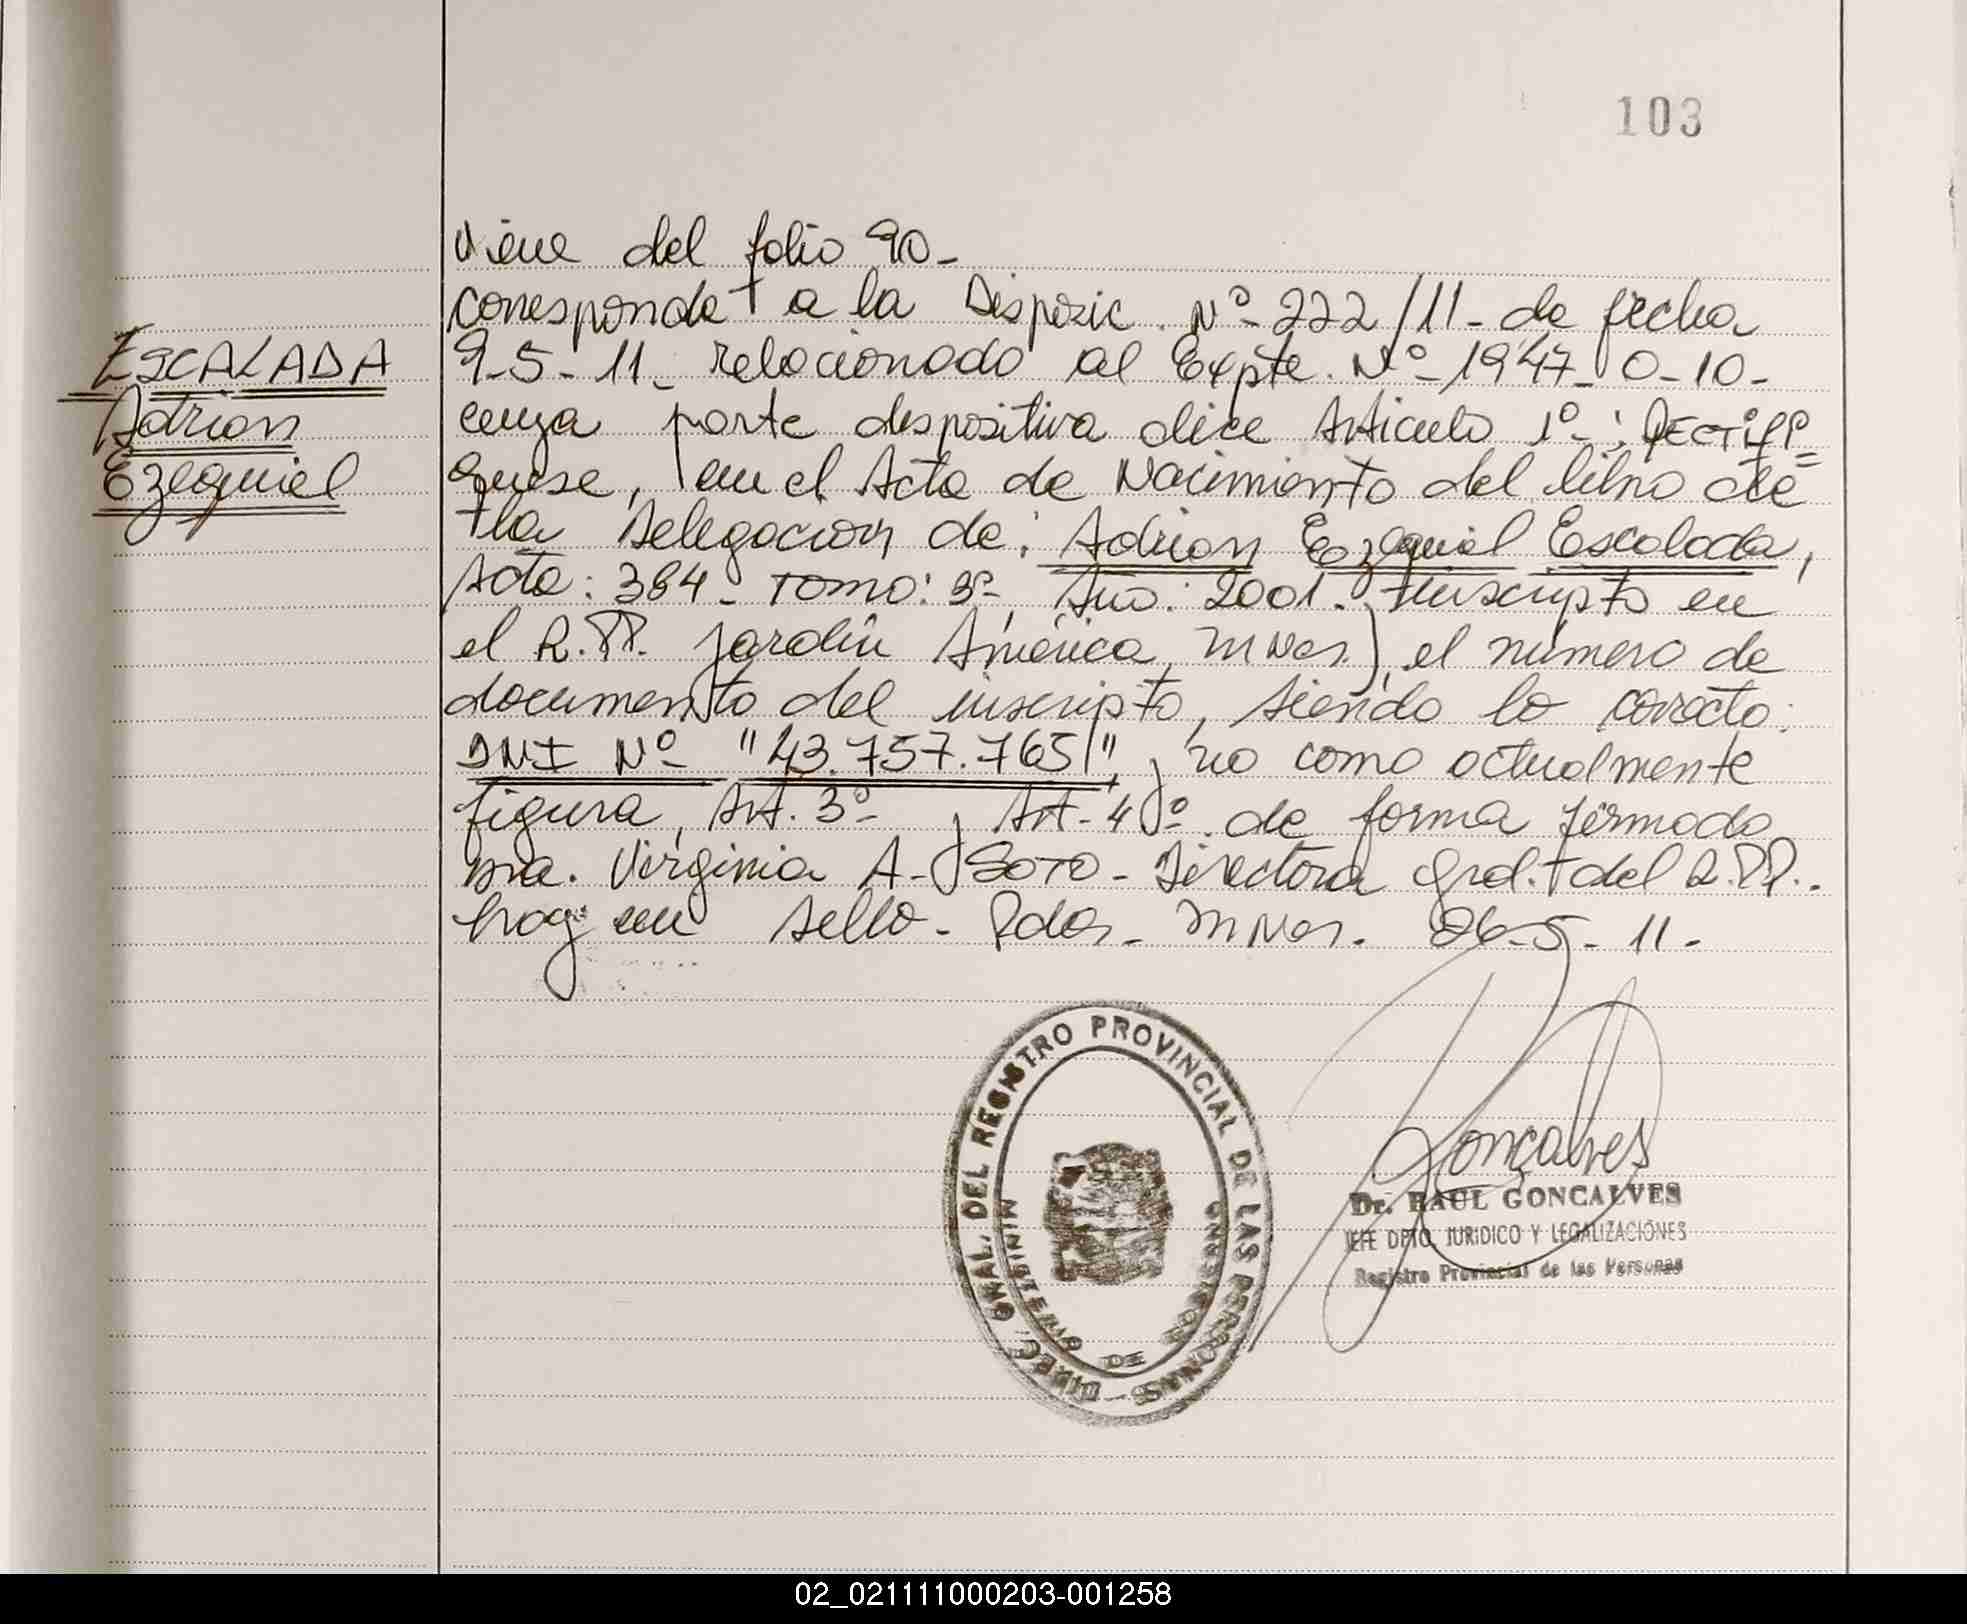 103
Viene del folio 90-
Corresponde a la Disposic. Nº-222/11- de fecha
ESCALADA
Adrian
Ezequiel
9-5-11- relacionado al Expte. Nº-1947-0-10-
cuya parte dispositiva dice Articulo 1º-: RECTIFI=
quese, en el Acta de Nacimiento del libro de
la Delegacion de: Adrian Ezequiel Escalada,
Acta: 384- Tomo: 3º- Año: 2001- Inscripto en
el R.PP. Jardín América, Mnes.) el número de
documento del inscripto, siendo lo correcto:
DNI Nº "43.757.765", y no como actualmente
figura, Art. 3º- y Art-4º- de forma firmado
Dra. Virginia A. SOTO- Directora Gral. del R.PP.-
hay un sello- Pdas. Mnes. 26-5-11-
DIREC. GRAL. DEL REGISTRO PROVINCIAL DE LAS PERSONAS
MINISTERIO DE GOBIERNO
Gonçalves
Dr. RAUL GONCALVES
JEFE DPTO. JURIDICO Y LEGALIZACIONES
Registro Provincial de las Personas
02_021111000203-001258